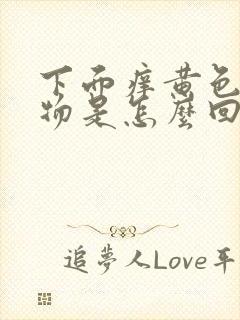 下面痒黄色
物是怎麼回
追夢人Love平